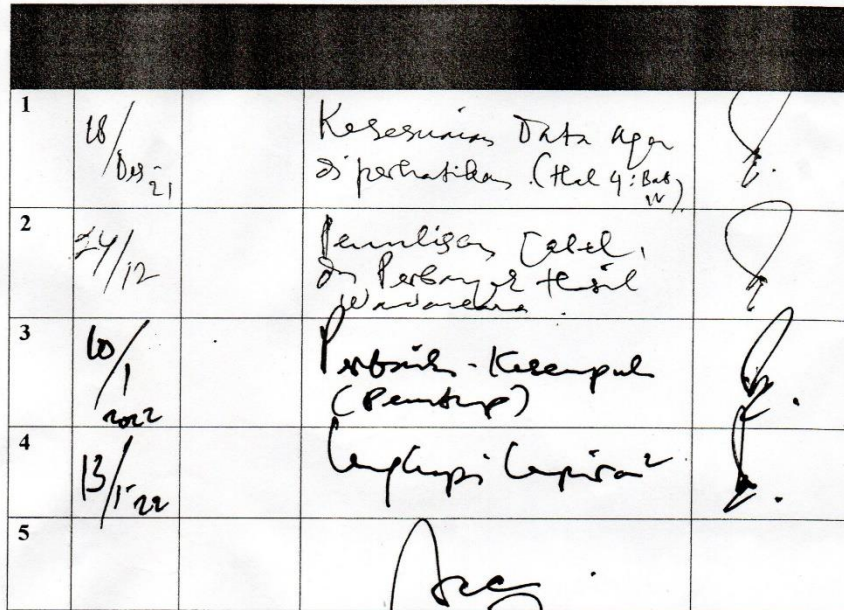 1
18/Des-21
Kesesuaian Data agar
diperhatikan. (Hal 4: Bab IV)
2
24/12
Penulisan Tabel,
dn Perbanyak Hasil
Wawancara
3
10/1 2022
Perbaiki - Kesimpulan
(Penutup)
4
13/1-22
Lengkapi Lampiran²
5
Acc